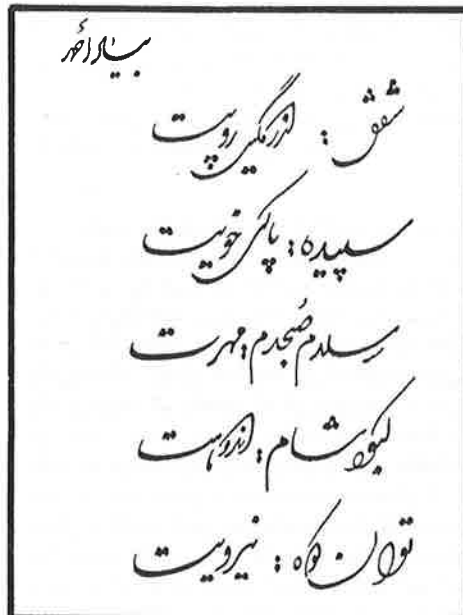 بیاد
شفق: ازرمگین رویت
سپیده: پاکی خویت
صبحدم: مهرت
کبود شام: اندوهت
توان کوه: نیرویت